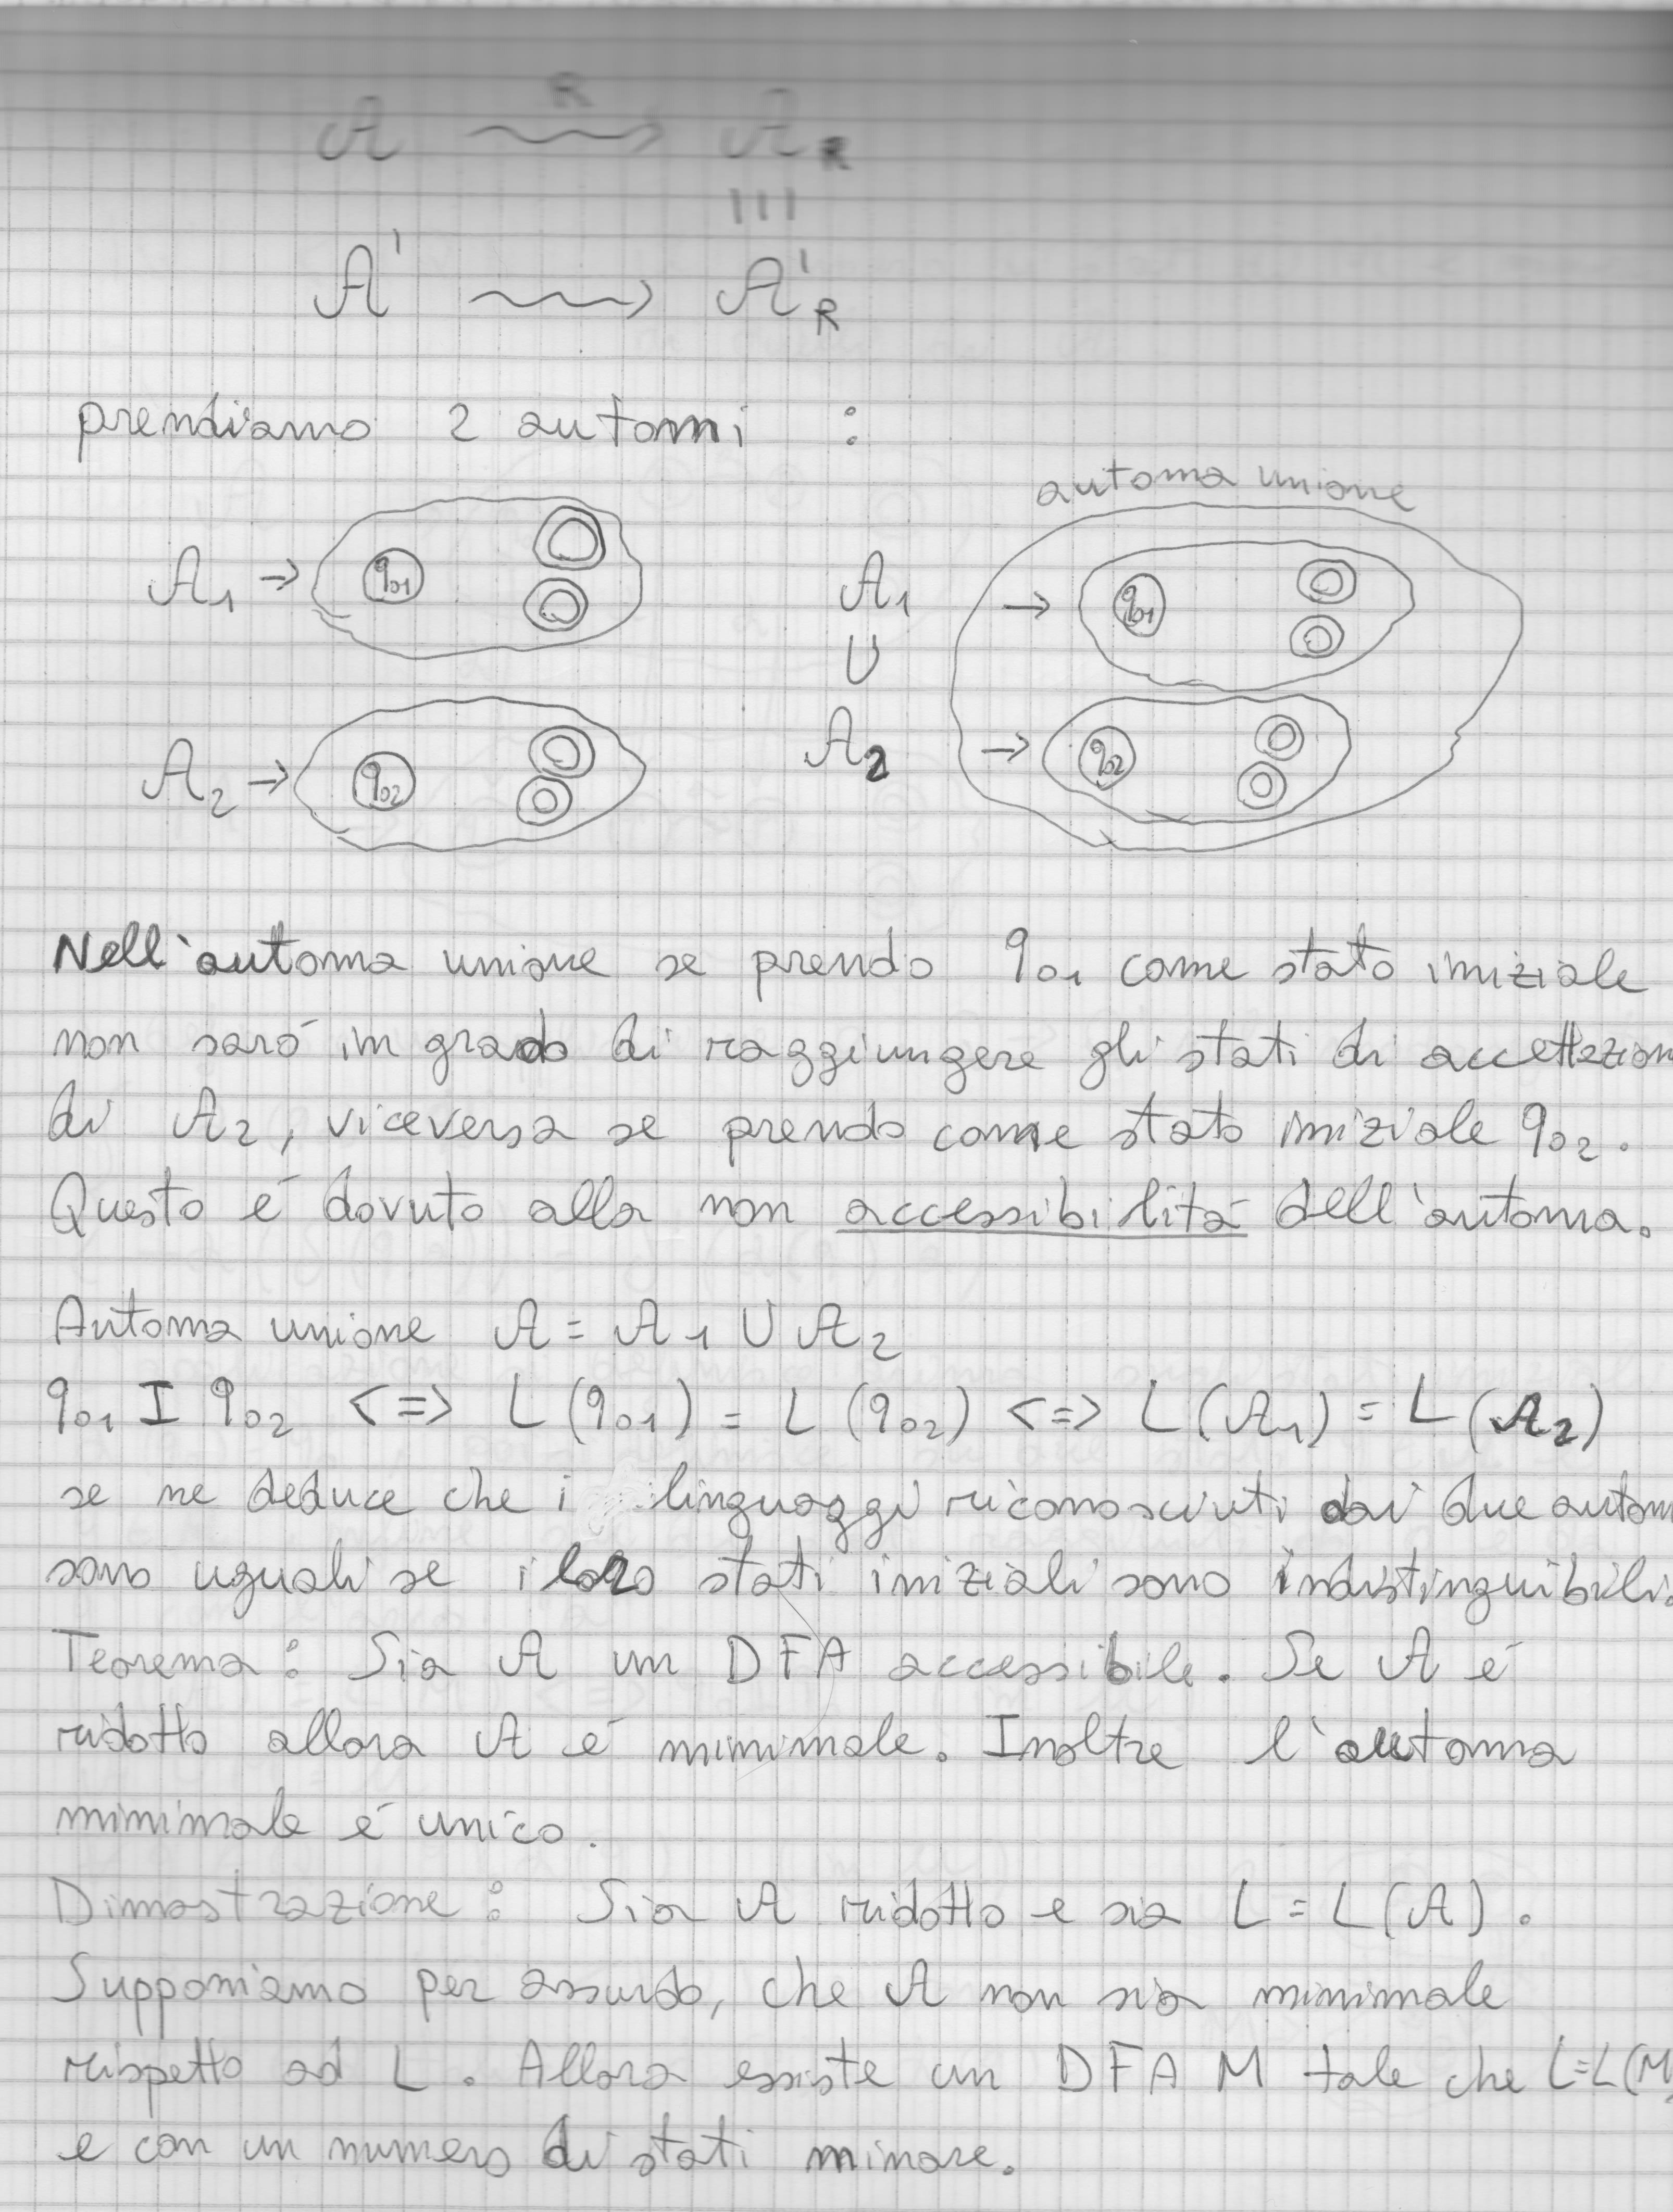 𝒜 R ⇝ 𝒜_R
|||
𝒜' ⇝ 𝒜'_R
prendiamo 2 automi :
automa unione
𝒜₁ → q₀₁
𝒜₁ → q₀₁
∪
𝒜₂ → q₀₂
𝒜₂ → q₀₂
Nell'automa unione se prendo q₀₁ come stato iniziale
non saró in grado di raggiungere gli stati di accettazion
di 𝒜₂, viceversa se prendo come stato iniziale q₀₂.
Questo é dovuto alla non accessibilitá dell'automa.
Automa unione 𝒜 = 𝒜₁ ∪ 𝒜₂
q₀₁ I q₀₂ <=> L(q₀₁) = L(q₀₂) <=> L(𝒜₁) = L(𝒜₂)
se ne deduce che i linguaggi riconosciuti dai due autom
sono uguali se i loro stati iniziali sono indistinguibili.
Teorema : Sia 𝒜 un DFA accessibile. Se 𝒜 é
ridotto allora 𝒜 é minimale. Inoltre l'automa
minimale é unico.
Dimostrazione : Sia 𝒜 ridotto e sia L = L(𝒜).
Supponiamo per assurdo, che 𝒜 non sia minimale
rispetto ad L. Allora esiste un DFA M tale che L=L(M)
e con un numero di stati minore.